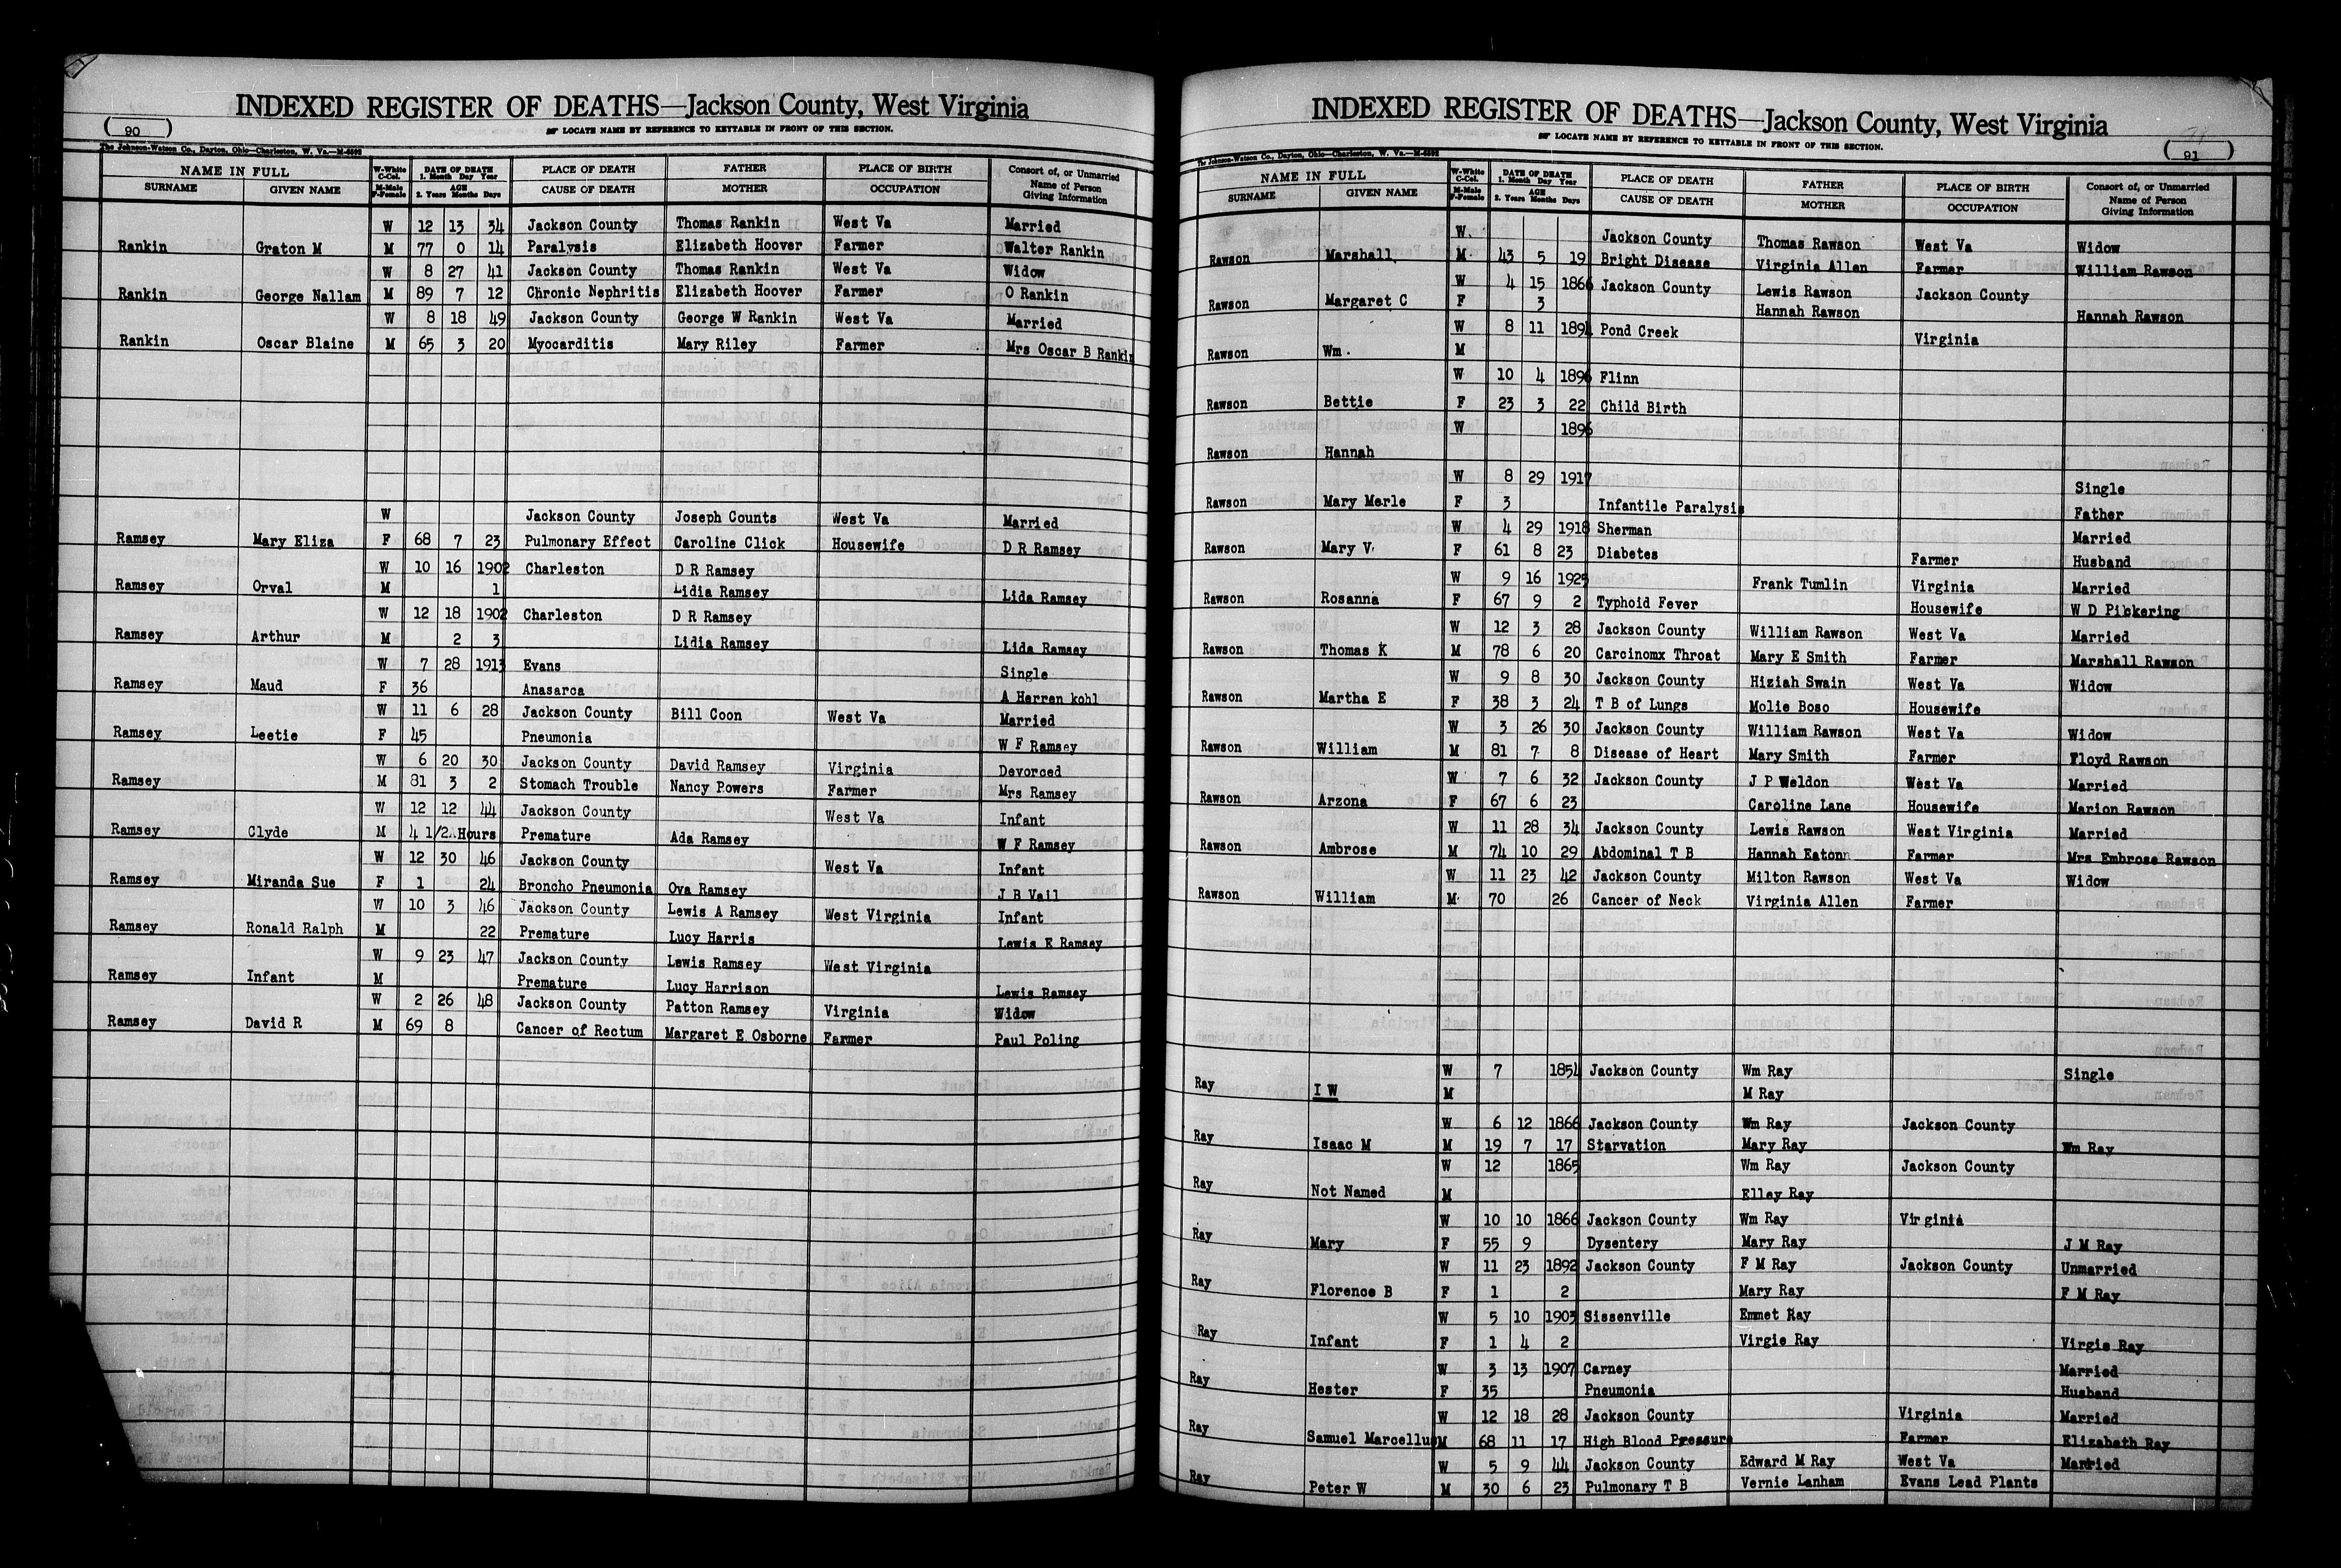 INDEXED REGISTER OF DEATHS—Jackson County, West Virginia
( 90 )
☞ LOCATE NAME BY REFERENCE TO KEYTABLE IN FRONT OF THIS SECTION.
The Johnson-Watson Co., Dayton, Ohio—Charleston, W. Va.—M-6592
NAME IN FULL W-White C-Col. DATE OF DEATH 1. Month Day Year PLACE OF DEATH FATHER PLACE OF BIRTH Consort of, or Unmarried
SURNAME GIVEN NAME M-Male F-Female AGE 2. Years Months Days CAUSE OF DEATH MOTHER OCCUPATION Name of Person Giving Information
W 12 13 34 Jackson County Thomas Rankin West Va Married
Rankin Graton M M 77 0 14 Paralysis Elizabeth Hoover Farmer Walter Rankin
W 8 27 41 Jackson County Thomas Rankin West Va Widow
Rankin George Nallam M 89 7 12 Chronic Nephritis Elizabeth Hoover Farmer O Rankin
W 8 18 49 Jackson County George W Rankin West Va Married
Rankin Oscar Blaine M 65 3 20 Myocarditis Mary Riley Farmer Mrs Oscar B Rankin
W Jackson County Joseph Counts West Va Married
Ramsey Mary Eliza F 68 7 23 Pulmonary Effect Caroline Click Housewife D R Ramsey
W 10 16 1902 Charleston D R Ramsey
Ramsey Orval M 1 Lidia Ramsey Lida Ramsey
W 12 18 1902 Charleston D R Ramsey
Ramsey Arthur M 2 3 Lidia Ramsey Lida Ramsey
W 7 28 1913 Evans Single
Ramsey Maud F 36 Anasarca A Herren kohl
W 11 6 28 Jackson County Bill Coon West Va Married
Ramsey Leetie F 45 Pneumonia W F Ramsey
W 6 20 30 Jackson County David Ramsey Virginia Devorced
Ramsey M 81 3 2 Stomach Trouble Nancy Powers Farmer Mrs Ramsey
W 12 12 44 Jackson County West Va Infant
Ramsey Clyde M 4 1/2..Hours Premature Ada Ramsey W F Ramsey
W 12 30 46 Jackson County West Va Infant
Ramsey Miranda Sue F 1 24 Broncho Pneumonia Ova Ramsey J B Vail
W 10 3 46 Jackson County Lewis A Ramsey West Virginia Infant
Ramsey Ronald Ralph M 22 Premature Lucy Harris Lewis E Ramsey
W 9 23 47 Jackson County Lewis Ramsey West Virginia
Ramsey Infant M Premature Lucy Harrison Lewis Ramsey
W 2 26 48 Jackson County Patton Ramsey Virginia Widow
Ramsey David R M 69 8 Cancer of Rectum Margaret E Osborne Farmer Paul Poling
INDEXED REGISTER OF DEATHS—Jackson County, West Virginia
( 91 )
☞ LOCATE NAME BY REFERENCE TO KEYTABLE IN FRONT OF THIS SECTION.
The Johnson-Watson Co., Dayton, Ohio—Charleston, W. Va.—M-6592
NAME IN FULL W-White C-Col. DATE OF DEATH 1. Month Day Year PLACE OF DEATH FATHER PLACE OF BIRTH Consort of, or Unmarried
SURNAME GIVEN NAME M-Male F-Female AGE 2. Years Months Days CAUSE OF DEATH MOTHER OCCUPATION Name of Person Giving Information
W. Jackson County Thomas Rawson West Va Widow
Rawson Marshall M. 43 5 19 Bright Disease Virginia Allen Farmer William Rawson
W 4 15 1866 Jackson County Lewis Rawson Jackson County
Rawson Margaret C F 3 Hannah Rawson Hannah Rawson
W 8 11 1894 Pond Creek Virginia
Rawson Wm. M
W 10 4 1896 Flinn
Rawson Bettie F 23 3 22 Child Birth
W 1896
Rawson Hannah
W 8 29 1917 Single
Rawson Mary Merle F 3 Infantile Paralysis Father
W 4 29 1918 Sherman Married
Rawson Mary V. F 61 8 23 Diabetes Farmer Husband
W 9 16 1925 Frank Tumlin Virginia Married
Rawson Rosanna F 67 9 2 Typhoid Fever Housewife W D Pickering
W 12 3 28 Jackson County William Rawson West Va Married
Rawson Thomas K M 78 6 20 Carcinomx Throat Mary E Smith Farmer Marshall Rawson
W 9 8 30 Jackson County Hiziah Swain West Va Widow
Rawson Martha E F 38 3 24 T B of Lungs Molie Boso Housewife
W 3 26 30 Jackson County William Rawson West Va Widow
Rawson William M 81 7 8 Disease of Heart Mary Smith Farmer Floyd Rawson
W 7 6 32 Jackson County J P Weldon West Va Married
Rawson Arzona F 67 6 23 Caroline Lane Housewife Marion Rawson
W 11 28 34 Jackson County Lewis Rawson West Virginia Married
Rawson Ambrose M 74 10 29 Abdominal T B Hannah Eatonn Farmer Mrs Embrose Rawson
W 11 23 42 Jackson County Milton Rawson West Va Widow
Rawson William M. 70 26 Cancer of Neck Virginia Allen Farmer
W 7 1854 Jackson County Wm Ray Single
Ray I W M M Ray
W 6 12 1866 Jackson County Wm Ray Jackson County
Ray Isaac M M 19 7 17 Starvation Mary Ray Wm Ray
W 12 1865 Wm Ray Jackson County
Ray Not Named M Elley Ray
W 10 10 1866 Jackson County Wm Ray Virginia
Ray Mary F 55 9 Dysentery Mary Ray J M Ray
W 11 23 1892 Jackson County F M Ray Jackson County Unmarried
Ray Florence B F 1 2 Mary Ray F M Ray
W 5 10 1903 Sissenville Emmet Ray
Ray Infant F 1 4 2 Virgie Ray Virgie Ray
W 3 13 1907 Carney Married
Ray Hester F 35 Pneumonia Husband
W 12 18 28 Jackson County Virginia Married
Ray Samuel Marcellus M 68 11 17 High Blood Pressure Farmer Elizabeth Ray
W 5 9 44 Jackson County Edward M Ray West Va Married
Ray Peter W M 30 6 23 Pulmonary T B Vernie Lanham Evans Lead Plants